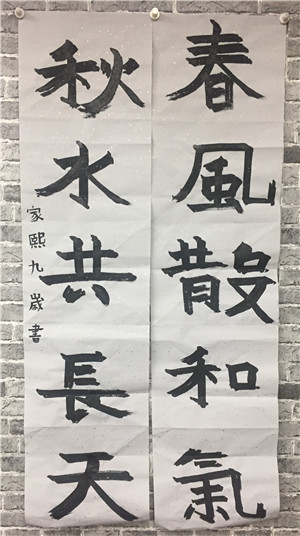 春風散和氣
秋水共長天
家熙九歲書